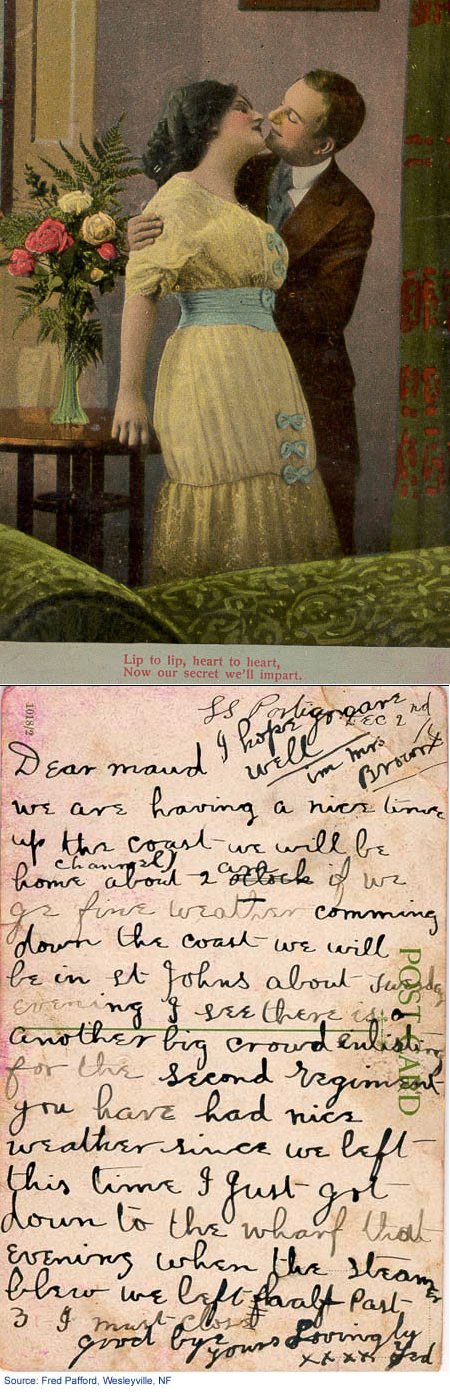 Lip to lip, heart to heart,
Now our secret we'll impart.
1018/2
SS Portia
DEC 2nd
I hope you are
well
im mrs
Brown
Dear maud
we are having a nice time
up the coast we will be
home about 2 if we
fine weather comming
down the coast we will
be in st Johns about Tuesday
evening I see there is a
another big crowd enlisting
for the second regiment
you have had nice
weather since we left
this time I Just got
down to the wharf that
evening when the steamer
blew we left half Past
3 I must close
good bye yours Lovingly
xxxx
POST CARD
Source: Fred Pafford, Wesleyville, NF